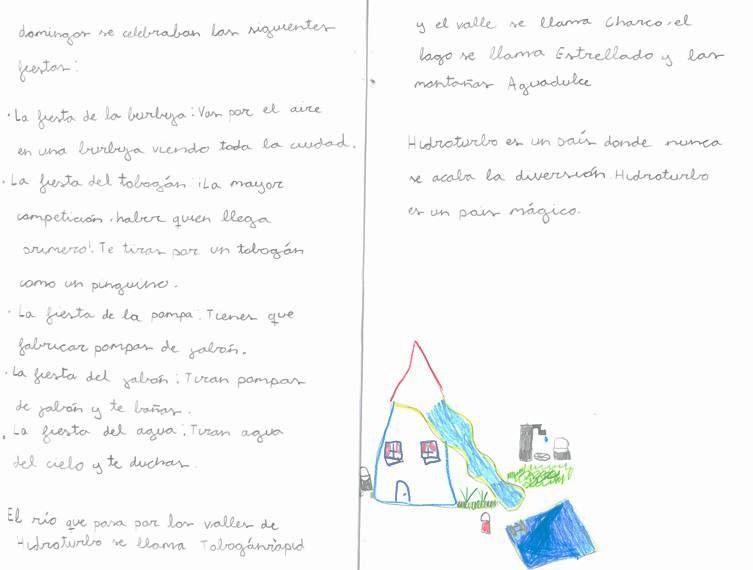 domingos se celebraban las siguientes
fiestas:
· La fiesta de la burbuja: Vas por el aire
en una burbuja viendo toda la ciudad.
· La fiesta del tobogán: ¡La mayor
competición, haber quien llega
primero!. Te tiras por un tobogán
como un pinguino.
· La fiesta de la pompa: Tienes que
fabricar pompas de jabón.
· La fiesta del jabón: Tiran pompas
de jabón y te bañas.
· La fiesta del agua: Tiran agua
del cielo y te duchas.
El río que pasa por los valles de
Hidroturbo se llama Tobogánrapid
y el valle se llama Charco, el
lago se llama Estrellado y las
montañas Aguadulce
Hidroturbo es un país donde nunca
se acaba la diversión. Hidroturbo
es un país mágico.